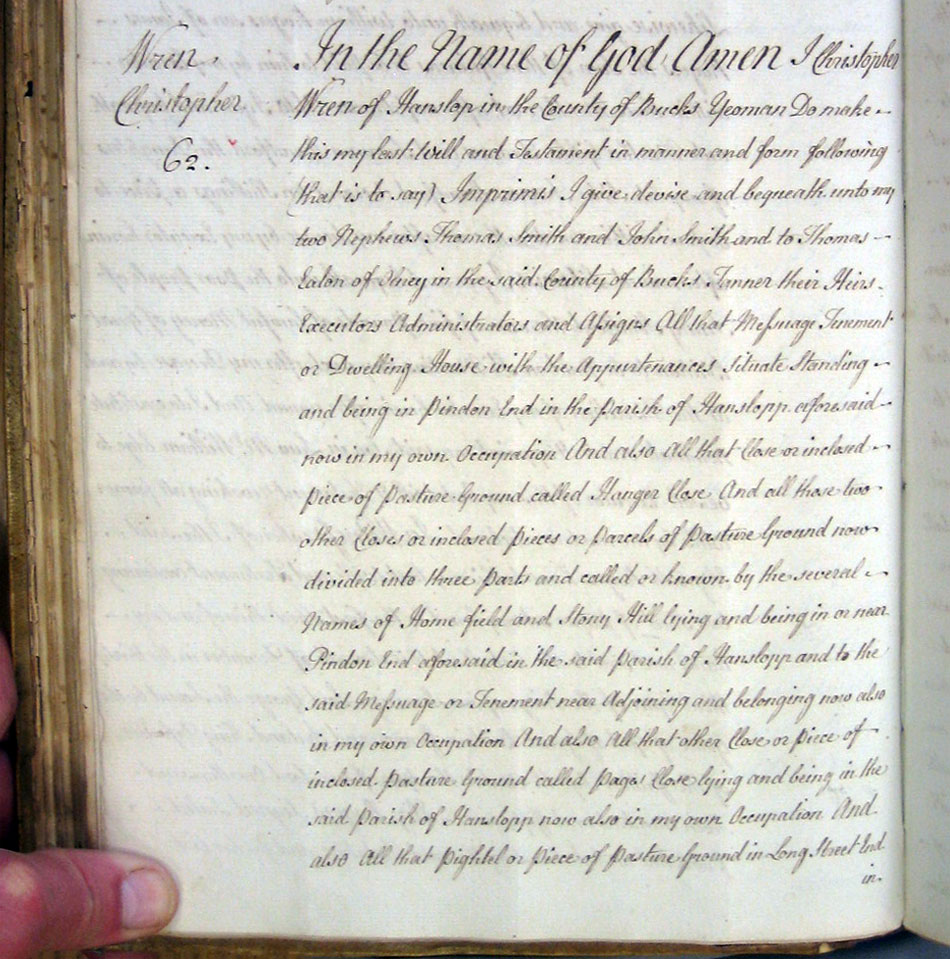 Wren
Christopher
62.
In the Name of God Amen I Christopher
Wren of Hanslop in the County of Bucks Yeoman Do make
this my last Will and Testament in manner and form following
(that is to say) Imprimis I give devise and bequeath unto my
two Nephews Thomas Smith and John Smith and to Thomas
Eaton of Olney in the said County of Bucks Tanner their Heirs
Executors Administrators and Assigns All that Messuage Tenement
or Dwelling House with the Appurtenances Situate Standing
and being in Pindon End in the Parish of Hanslopp aforesaid
now in my own Occupation And also All that Close or inclosed
piece of Pasture Ground called Hanger Close And all those two
other Closes or inclosed pieces or Parcels of Pasture Ground now
divided into three Parts and called or known by the several
Names of Home field and Stony Hill lying and being in or near
Pindon End aforesaid in the said Parish of Hanslopp and to the
said Messuage or Tenement near Adjoining and belonging now also
in my own Occupation And also All that other Close or Piece of
inclosed Pasture Ground called Pages Close lying and being in the
said Parish of Hanslopp now also in my own Occupation And
also All that Pightel or Piece of Pasture Ground in Long Street End
in